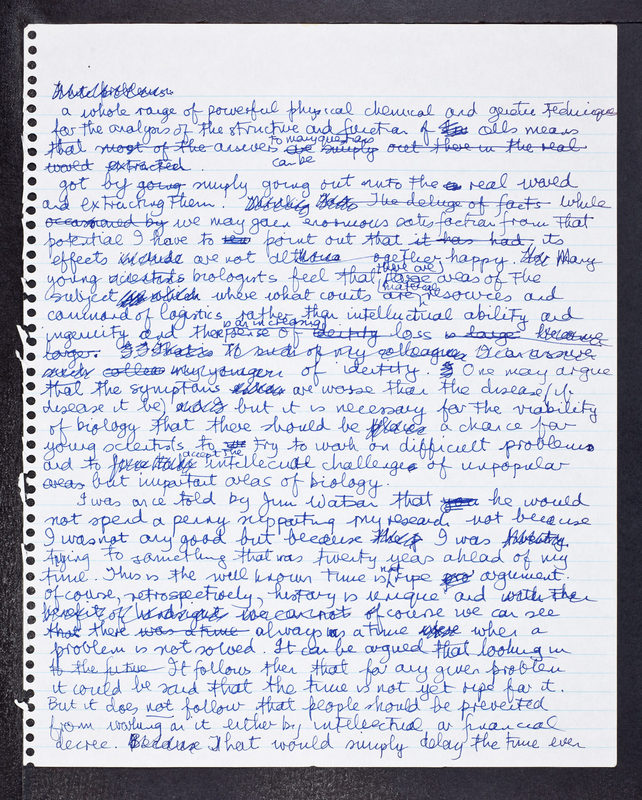 a whole range of powerful physical chemical and genetic technique
for the analysis of the structure and function of cells means
that most of the answers to many questions are simply out there in the real
world extracted can be
got by going simply going out into the real world
and extracting them. The deluge of facts while
occasioned by we may gain enormous satisfaction from that
potential I have to point out that it has had its
effects are not altogether happy. Many
young scientists biologists feel that there are large areas of the
subject which where what counts are material resources and
command of logistics rather than intellectual ability and
ingenuity and there is an increasing sense of identity loss is large because
large. to such of my colleagues I can answer
such younger of identity. One may argue
that the symptoms are worse than the disease (if
disease it be) but it is necessary for the viability
of biology that there should be a chance for
young scientists to try to work on difficult problems
and to accept the intellectual challenges of unpopular
areas but important areas of biology.
I was once told by Jim Watson that he would
not spend a penny supporting my research not because
I was not any good but because I was
trying to something that was twenty years ahead of my
time. This is the well known time is not ripe argument.
Of course, retrospectively, history is unique and with the
benefit of hindsight we cannot of course we can see
that there was a time always is a time when a
problem is not solved. It can be argued that looking in
to the future It follows then that for any given problem
it could be said that the time is not yet ripe for it.
But it does not follow that people should be prevented
from working on it either by intellectual or financial
decree. Because That would simply delay the time even